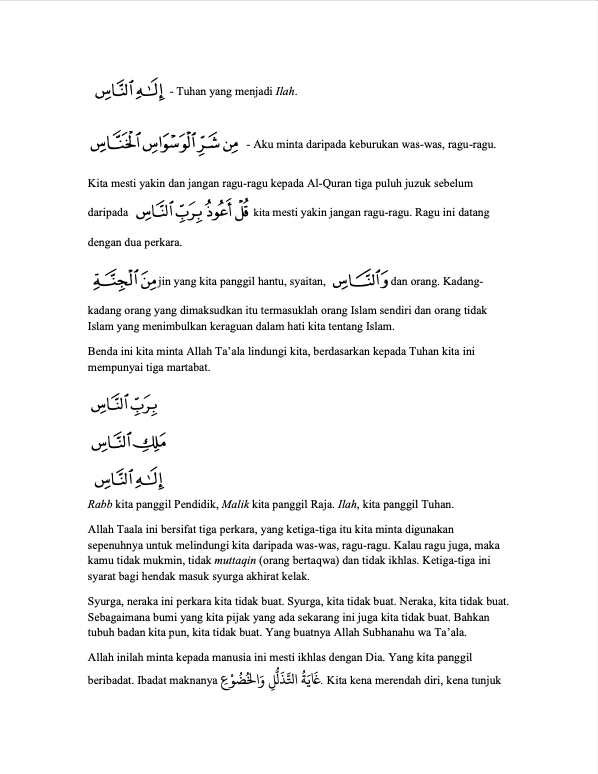 إِلَـٰهِ ٱلنَّاسِ - Tuhan yang menjadi Ilah.
مِن شَرِّ ٱلْوَسْوَاسِ ٱلْخَنَّاسِ - Aku minta daripada keburukan was-was, ragu-ragu.
Kita mesti yakin dan jangan ragu-ragu kepada Al-Quran tiga puluh juzuk sebelum
daripada قُلْ أَعُوذُ بِرَبِّ ٱلنَّاسِ kita mesti yakin jangan ragu-ragu. Ragu ini datang
dengan dua perkara.
مِنَ ٱلْجِنَّـةِ jin yang kita panggil hantu, syaitan, وَٱلنَّـاسِ dan orang. Kadang-
kadang orang yang dimaksudkan itu termasuklah orang Islam sendiri dan orang tidak
Islam yang menimbulkan keraguan dalam hati kita tentang Islam.
Benda ini kita minta Allah Ta’ala lindungi kita, berdasarkan kepada Tuhan kita ini
mempunyai tiga martabat.
بِرَبِّ ٱلنَّاسِ
مَلِكِ ٱلنَّاسِ
إِلَـٰهِ ٱلنَّاسِ
Rabb kita panggil Pendidik, Malik kita panggil Raja. Ilah, kita panggil Tuhan.
Allah Taala ini bersifat tiga perkara, yang ketiga-tiga itu kita minta digunakan
sepenuhnya untuk melindungi kita daripada was-was, ragu-ragu. Kalau ragu juga, maka
kamu tidak mukmin, tidak muttaqin (orang bertaqwa) dan tidak ikhlas. Ketiga-tiga ini
syarat bagi hendak masuk syurga akhirat kelak.
Syurga, neraka ini perkara kita tidak buat. Syurga, kita tidak buat. Neraka, kita tidak buat.
Sebagaimana bumi yang kita pijak yang ada sekarang ini juga kita tidak buat. Bahkan
tubuh badan kita pun, kita tidak buat. Yang buatnya Allah Subhanahu wa Ta’ala.
Allah inilah minta kepada manusia ini mesti ikhlas dengan Dia. Yang kita panggil
beribadat. Ibadat maknanya غَايَةُ التَّذَلُّلِ وَالْخُضُوْعِ. Kita kena merendah diri, kena tunjuk